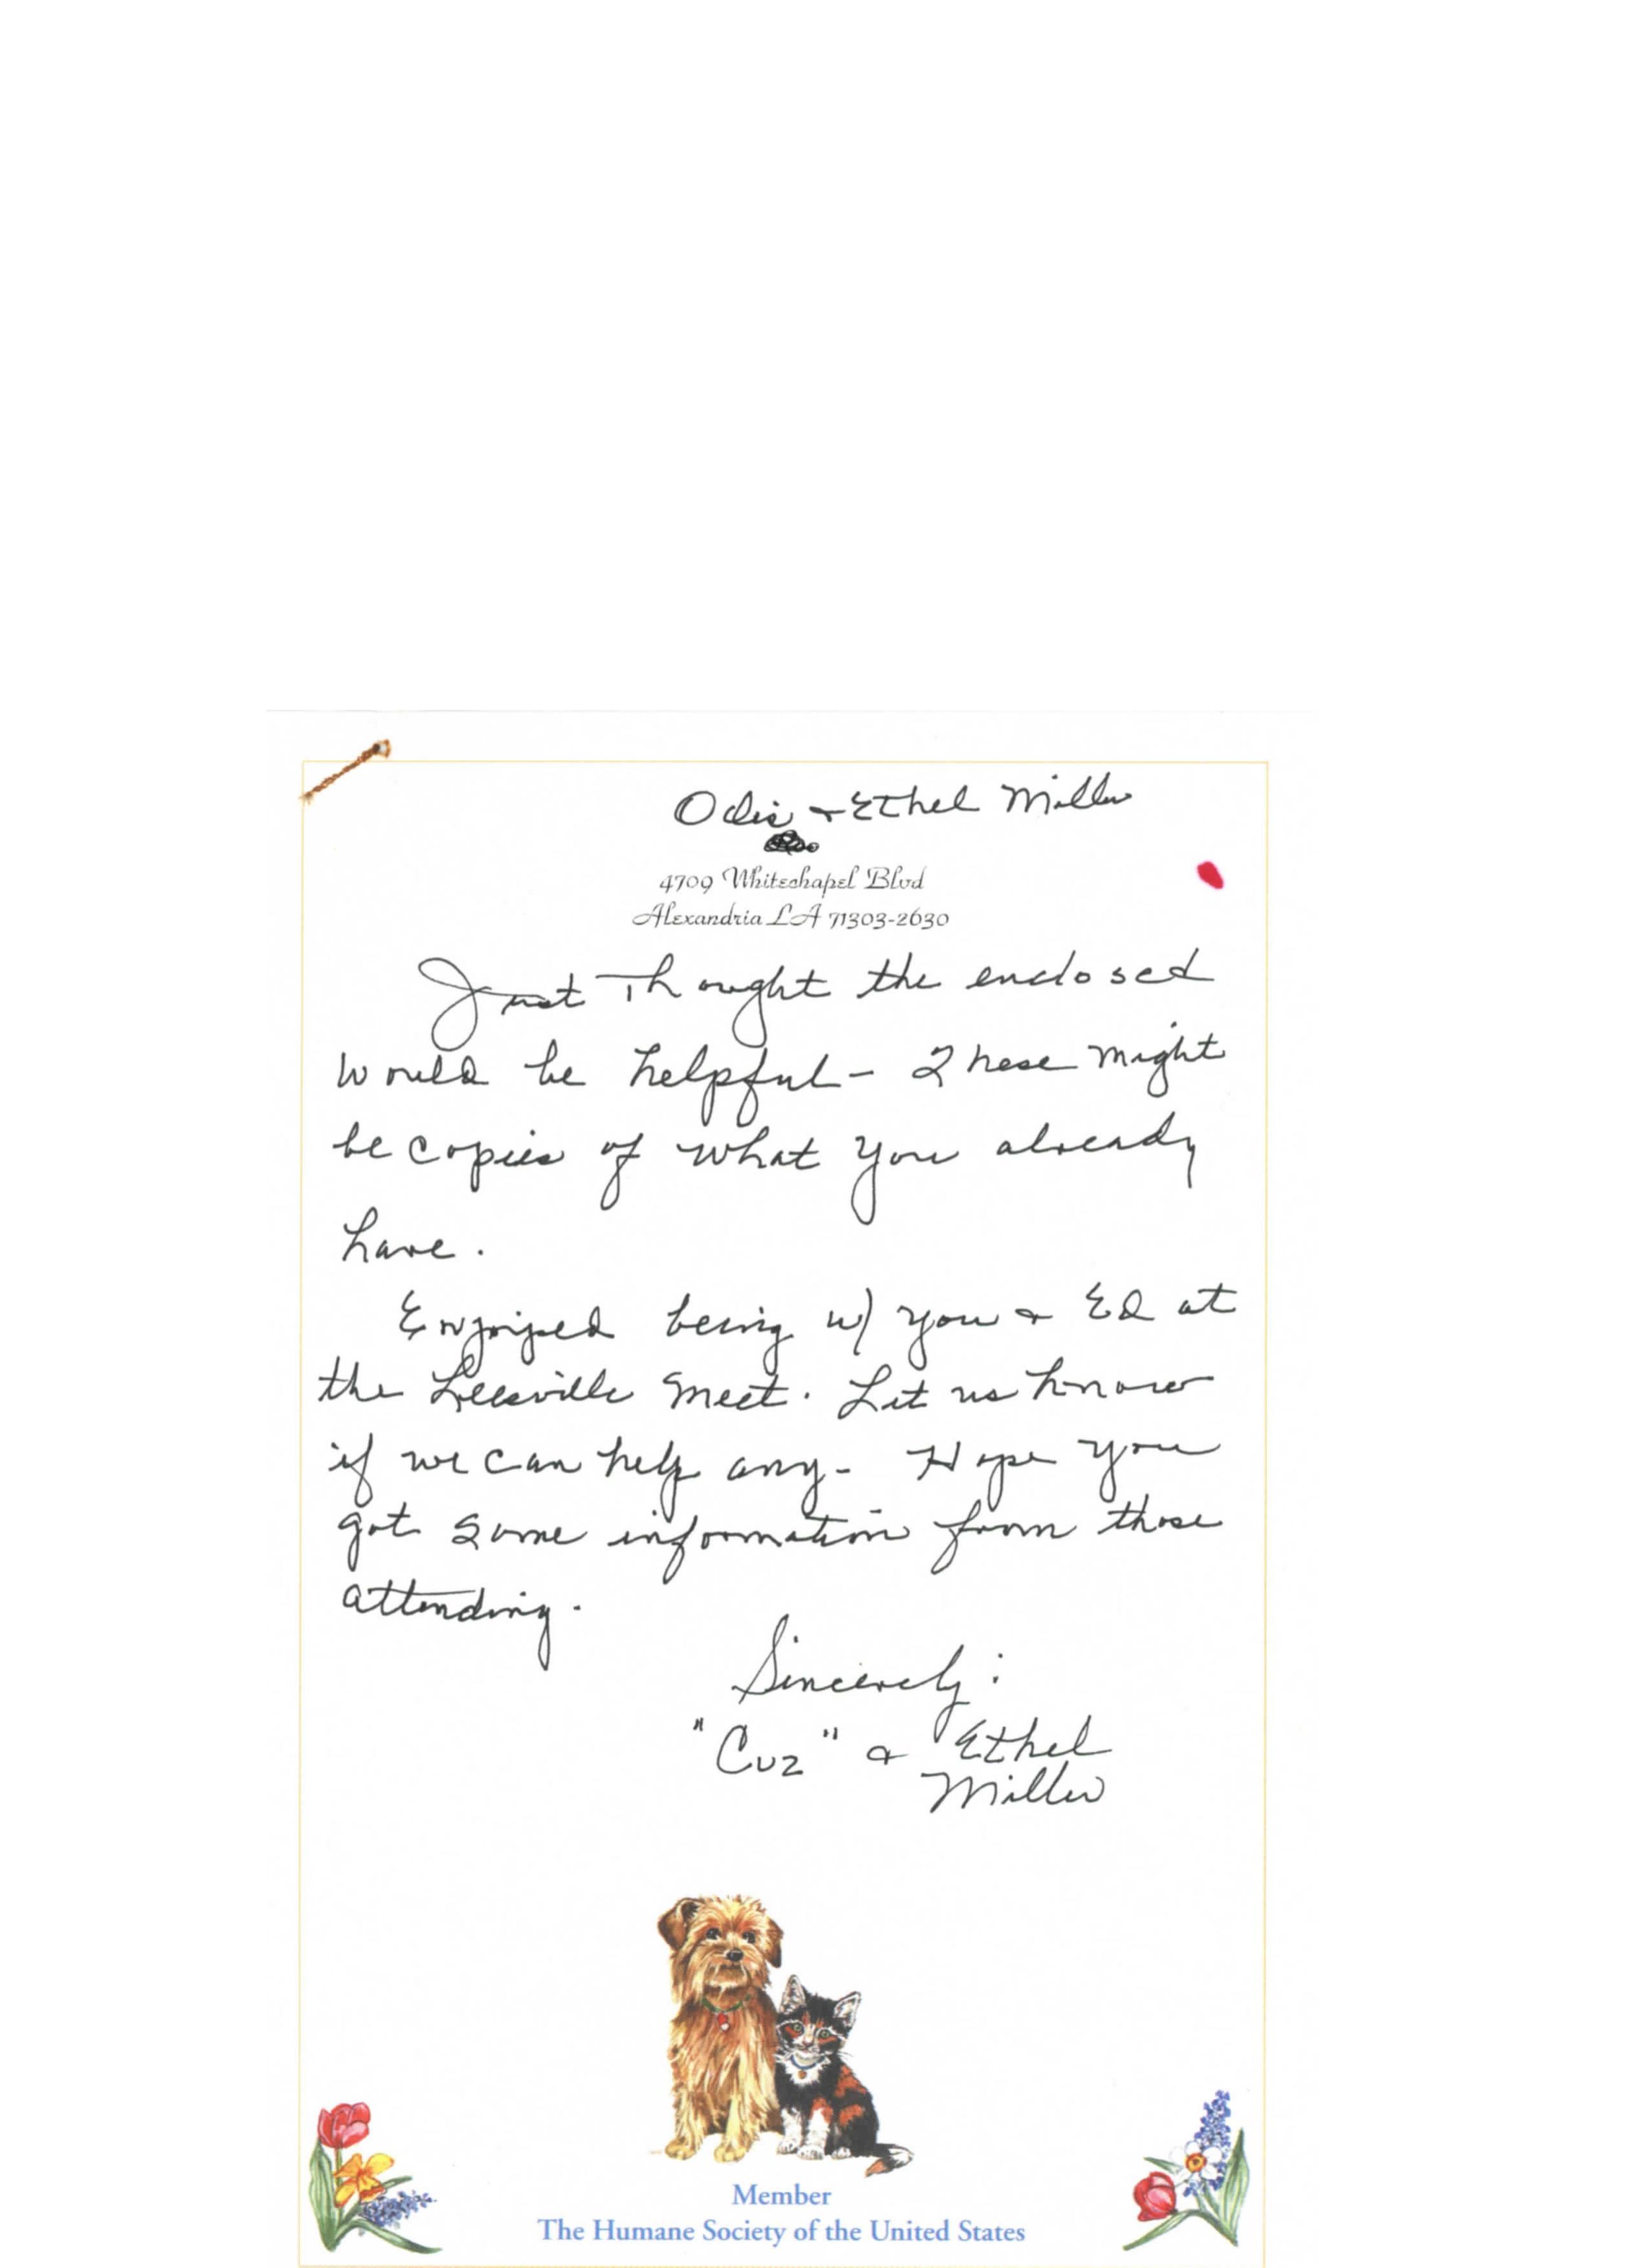 Odis + Ethel Miller
4709 Whitechapel Blvd
Alexandria LA 71303-2630
Just Thought the enclosed
would be helpful - These might
be copies of what you already
have.
Enjoyed being w/ you + Ed at
the Leesville meet. Let us know
if we can help any - Hope you
got some information from those
attending.
Sincerely:
"Cuz" & Ethel
Miller
Member
The Humane Society of the United States